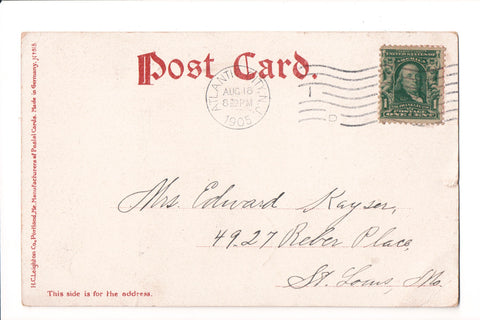 Post Card.
ATLANTIC CITY, N.J.
AUG 18
1905
1
UNITED STATES OF
AMERICA
1 1
POSTAGE
ONE CENT
Mrs. Edward Kayser,
4927 Reber Place,
St. Louis, Mo.
This side is for the address.
H.C. Leighton Co., Portland, Me. Manufacturers of Postal Cards. Made in Germany.